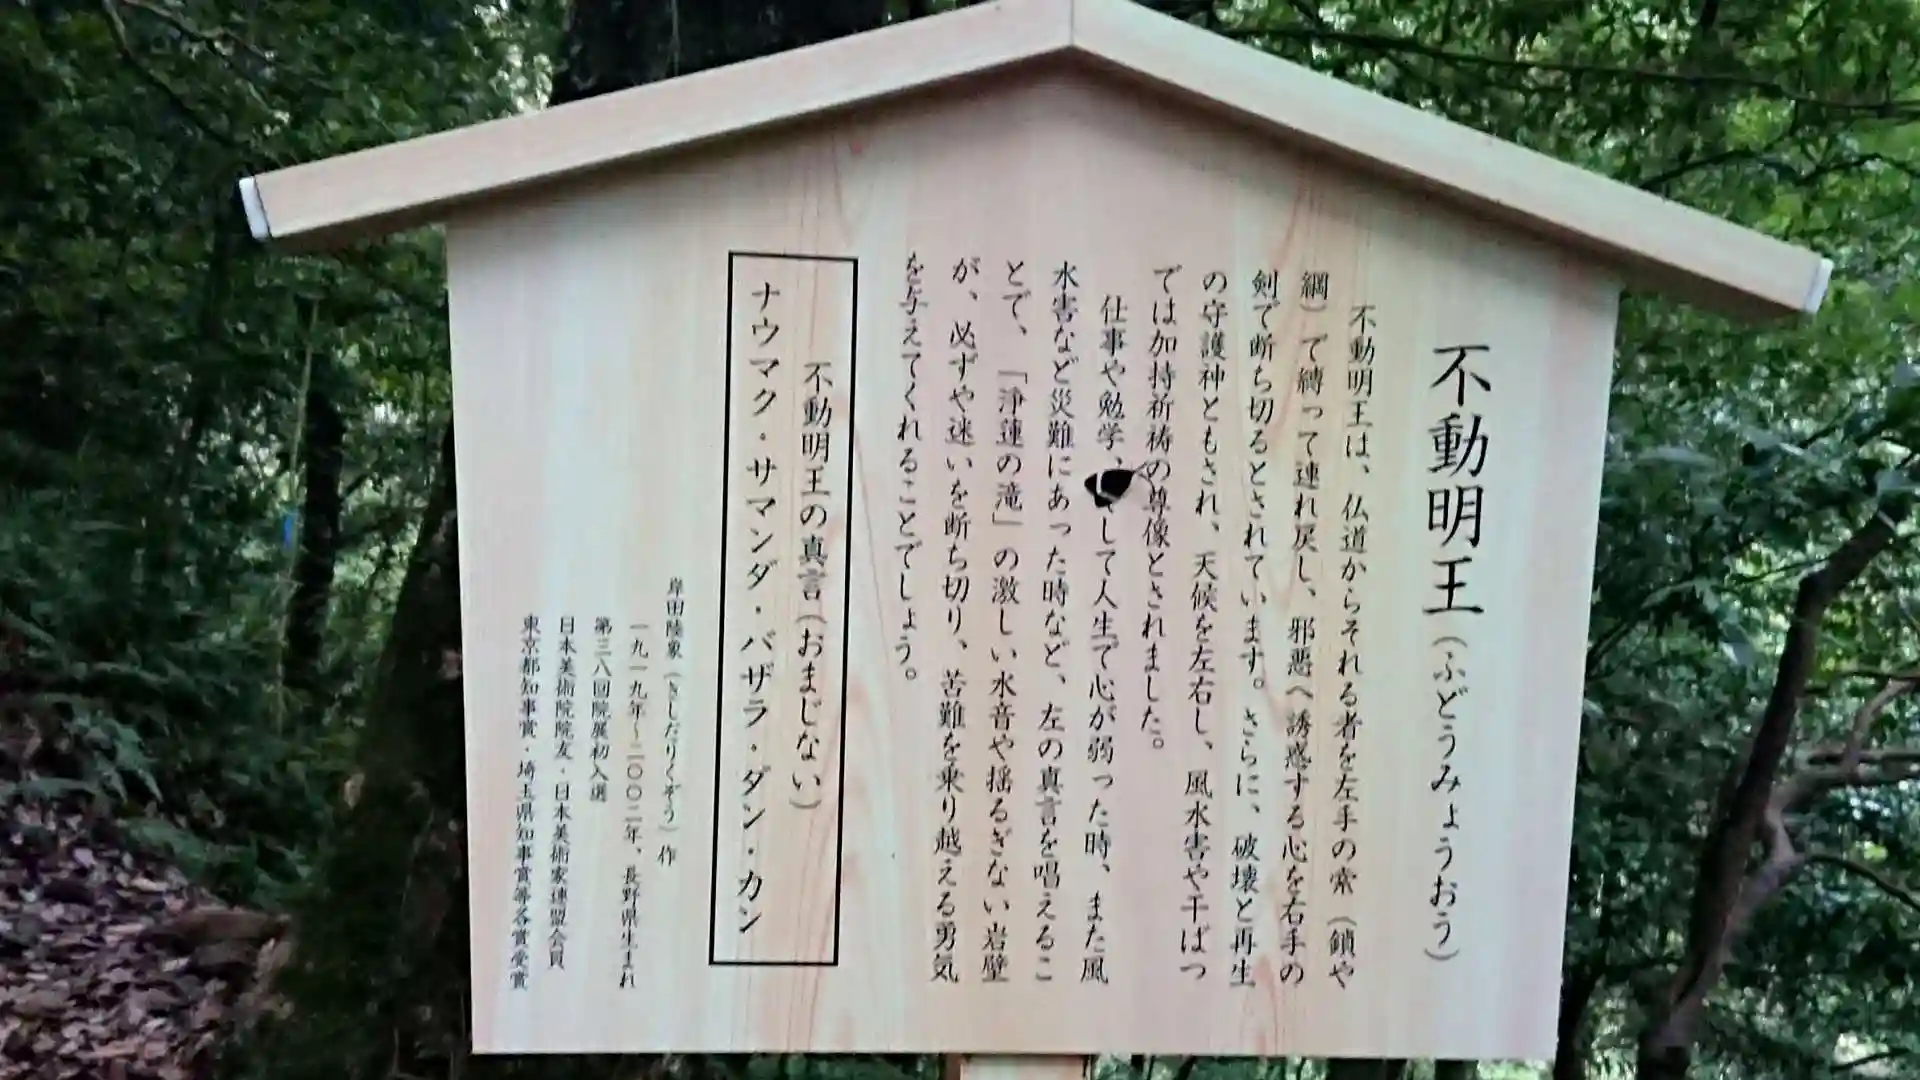 不動明王（ふどうみょうおう）
不動明王は、仏道からそれる者を左手の索（鎖や
綱）で縛って連れ戻し、邪悪へ誘惑する心を右手の
剣で断ち切るとされています。さらに、破壊と再生
の守護神ともされ、天候を左右し、風水害や干ばつ
では加持祈祷の尊像とされました。
仕事や勉学、して人生で心が弱った時、また風
水害など災難にあった時など、左の真言を唱えるこ
とで、「浄蓮の滝」の激しい水音や揺るぎない岩壁
が、必ずや迷いを断ち切り、苦難を乗り越える勇気
を与えてくれることでしょう。
不動明王の真言（おまじない）
ナウマク・サマンダ・バザラ・ダン・カン
岸田陸象（きしだりくぞう）作
一九一九年～二〇〇二年、長野県生まれ
第三八回院展初入選
日本美術院院友・日本美術家連盟会員
東京都知事賞・埼玉県知事賞等各賞受賞